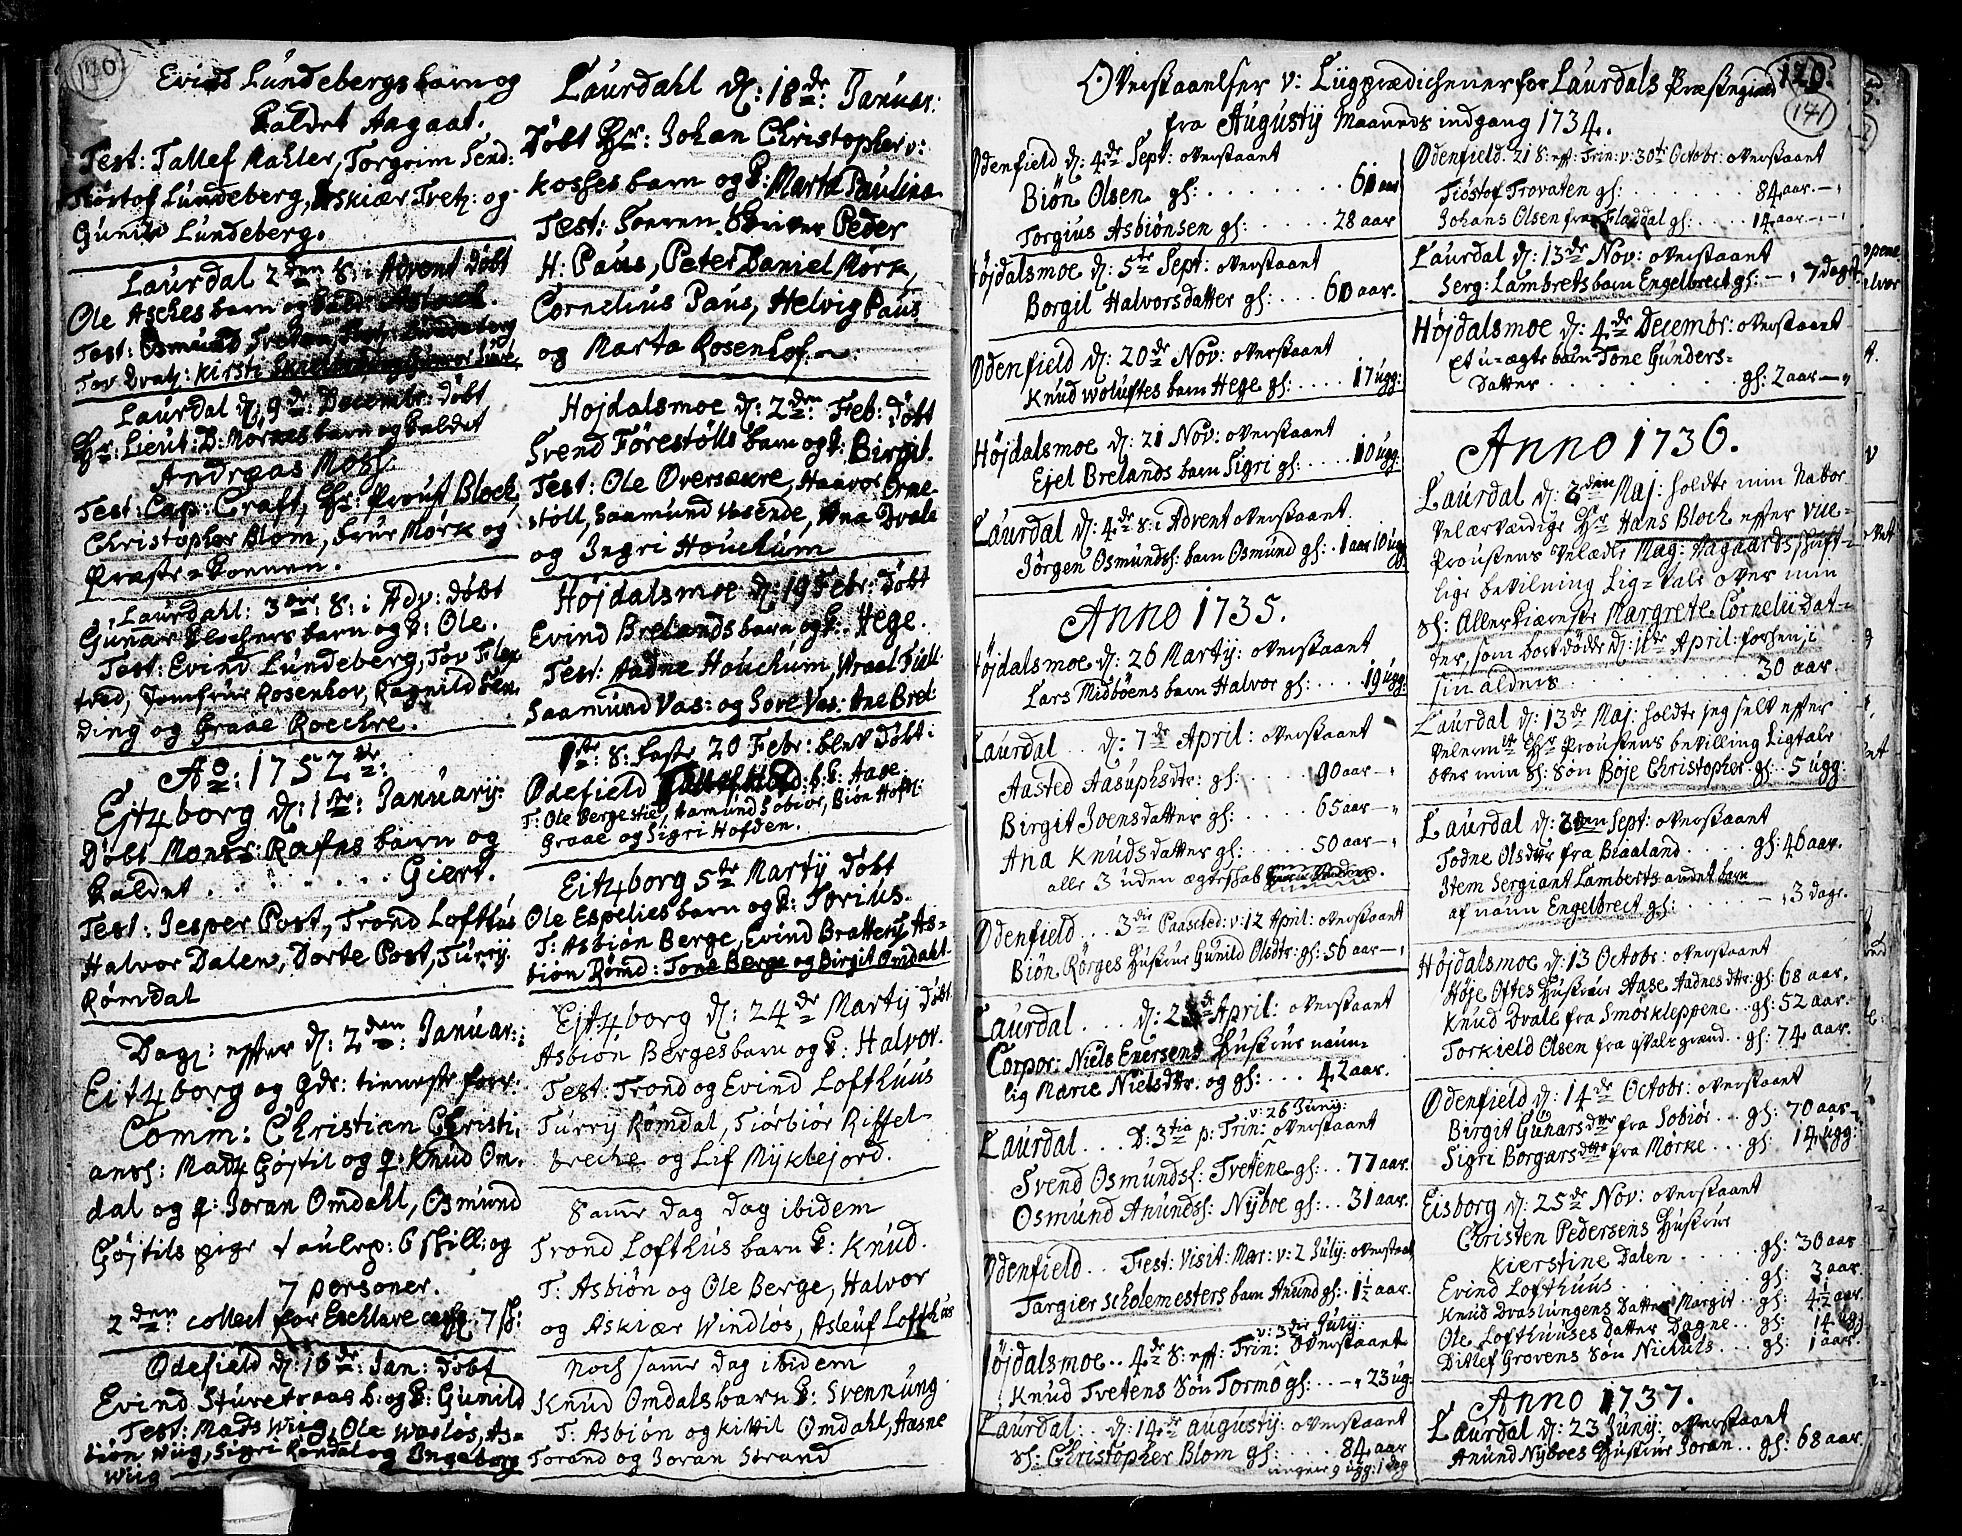 170.
Evind Lundebergs barn og
kaldet Aagaat.
Test: Tallef Mahler, Torgrim Send:
Tiøstof Lundeberg, Askiær Tvetz: og
Gunild Lundeberg.
Laurdal 2den S: i Advent døbt
Ole Asches barn og
Test: Osmund
Tov Dratz: Kirsti
Laurdal d: 9de Decembr: døbt
Hr: Lieut: D: Morkes barn og kaldet
Andreas Moss.
Test: Cap: Craft, Hr: Proust Bloch,
Christopher Blom, Frue Mørk og
Præste-Koenen.
Laurdahl: 3die: S: i Adv: døbt
Gunar Klochers barn og k: Ole.
Test: Evind Lundeberg, Tov
Jomfrue Rosenhov, Ragnild Sen-
ding og Graae Roechre.
Ao: 1752.
Ejtzborg d: 1ste: Januarij:
Døbt Monsr: Rafns barn og
kaldet . . . . . . . . Giert.
Test: Jesper Post, Trond Lofthus
Halvor Dalen, Dorte Post, Turrij
Rømdal
Dagz: efter d: 2den: Januar:
Eitzborg og gde: tieneste forr:
Comm: Christian Christi-
ansz: Madz Gøjtil og q: Knud Om-
dal og q: Joran Omdahl, Osmund
Gøjtils pige 6 skill: og
7 personer.
2den collect for 7 sk:
Ødefield d: 16de: Jan: døbt
Evind Sturetraas b: og k: Gunild
Test: Mads Wiig, Ole Wasløs, As-
biøn Wiig, Sigri Rømdal og Ingeborg
Wiig
Laurdahl d: 18de: Januar:
Døbt Hr: Johan Christopher v:
Kosses barn og k: Marta Paulina
Test: Soeren Skriver Peder
H: Paus, Peter Daniel Mørk,
Cornelius Paus, Helvig Paus
og Marta Rosenhof.
Højdalsmoe d: 2den: Feb: døbt
Svend Førestølls barn og k: Birgit.
Test: Ole Oversækre, Haavor Orne-
støll, Saamund Vasende, Ana Dvale
og Ingri Houchum
Højdalsmoe d: 19 Febr: døbt
Evind Brelands barn og k: Hege.
Test: Aadne Houchum, Wraal
Saamund Vas: og Sove Vas: Ane Brel:
1ste: S: Faste 20 Febr: blev døbt:
Ødefield b: k: Aase.
T: Ole Bergestie, Aamund Sobiør, Biøn
Graae og Sigri Hofden.
Eitzborg 5te Martij døbt
Ole Espelies barn og k: Torius.
T: Asbiøn Berge, Evind Bratterij, As-
biøn Rømd: Tone Berge og Birgit Omdahl.
Ejtzborg d: 24de Martij døbt
Asbiøn Berges barn og k: Halvor.
Test: Trond og Evind Lofthuus
Turrij Rømdal, Tiørbiør Riffel
breche og Lif Mykbejord.
Samme dag ibidem
Trond Lofthus barn k: Knud.
T: Asbiøn og Ole Berge, Halvor
og Askiær Windløs, Asleuf Lofthus
Noch samme dag ibidem
Knud Omdals barn k: Svennung.
T: Asbiøn og Kittil Omdahl, Aasne
Torand og Joran Strand
Overstaaelser v: Liigprædichener for Laurdals Præstegield
129.
171
fra Augustij Maaneds indgang 1734.
Ødenfield d: 4de Sept: overstaant
Biøn Olsen gl: . . . . . . . . 60 aar
Torgius Asbiønsen gl: . . . . . 28 aar
Højdalsmoe d: 5te Sept: overstaant
Borgil Halvorsdatter gl: . . . 60 aar.
Ødenfield d: 20de Nov: overstaant
Knud Woluftes barn Hege gl: . . . . 17 ugg:
Højdalsmoe d: 21 Nov: overstaant
Ejel Brelands barn Sigri gl: . . . . 10 ugg.
Laurdal d: 4de S: i Advent overstaant
Jørgen Osmunds: barn Osmund gl: . 1 aar 10 ugg:
Anno 1735.
Højdalsmoe d: 26 Martij: overstaant
Lars Midbøens barn Halvor gl: . . . . 19 ugg:
Laurdal . . d: 7de April: overstaant
Aasted Aasuphsdtr: gl: . . . . 90 aar
Birgit Joensdatter gl: . . . . 65 aar
Ana Knudsdatter gl: . . . . 50 aar
alle 3 uden ægteskab
Ødenfield . . . 3die Paasched: v: 12 April: overstaant
Biøn Rørges Hustrue Gunild Olsdtr: gl: 56 aar
Laurdal . . . . d: April: overstaant
Corpor: Niels Enersens Hustrue naun-
lig Marie Nielsdtr. og gl: . . . 42 aar.
v: 26 Junij:
Laurdal . . . D: 3tia p: Trin: overstaant
Svend Osmunds: Tvetene gl: . . 77 aar.
Osmund Anunds: Nyboe gl: . . 31 aar.
Ødenfield . . Fest: Visit: Mar: v: 2 Julij: overstaat
Targier Scholemesters barn Anund gl: . 1½ aar.
v: 3die Julij:
Højdalsmoe . . 4de S: eft: Trin: overstaant
Knud Tvetens Søn Tormo gl: . . 23 ug
Laurdal: . . d: 14de Augustij: overstaant
Sl: Christopher Blom gl: . . . . 84 aar
9 ugg: 1 dag
Ødenfield. 21 S: eft: Trin: v: 30te Octobr: overstaant
Tiøstof Trovaten gl: . . . . . . 84 aar.
Johans Olsen fra Fladdal gl: . . . . 14 aar
Laurdal d: 13de Nov: overstaant
Serg: Lambrets barn Engelbrect gl: 7 dage.
Højdalsmoe d: 4de Decembr: overstaant
Et u-ægte barn Tone Gunders-
datter . . . . . . . . gl: 2 aar
Anno 1736.
Laurdal d: 2den Maj: holdte min Nabor
Velærværdige Hr Hans Bloch efter
Proustens Velædle Mag: Aagaards skrift-
lige bevilning Lig-tale over min
Sl: Allerkiæreste Margrete Cornelii dat-
ter, som bort døde d: 11te April: forhen, i
sin alders . . . . . . . 30 aar.
Laurdal d: 13de Maj: holdte jeg selv efter
Hr Proustens bevilling Ligtale
over min Sl: Søn Böje Christopher gl: 5 ugg:
Laurdal d: Sept: overstaant
Todne Olsdtr fra Braaland . . . . gl: 46 aar.
Item Sergiant Lamberts andet barn
af naun Engelbrect gl: . . . . 3 dage.
Højdalsmoe d: 13 Octobr: overstaant
Høje Oftes Hustrue Aase Aadnesdtr: gl: 68 aar.
Knud Dvale fra Smørkleppene . . gl: 52 aar.
Torkield Olsen fra grænd . . gl: 74 aar.
Ødenfield d: 14de Octobr: overstaant
Birgit Gunarsdtr fra Sobiør . . gl: 70 aar
Sigri Borgarsdtr fra Mørke . . . gl: 14 ugg:
Eisborg d: 25de Nov: overstaant
Christen Pedersens Hustrue
Kierstine Dalen . . . . . gl: 30 aar
Evind Lofthuus . . . . . gl: 3 aar.
Knud Draslungens Datter Margit . . gl: 4½ aar.
Ole Lofthuuses Datter Dagne . . gl: 14 ugg
Ditlef Grovens Søn Nichuls . . . gl: 1 aar.
Anno 1737.
Laurdal d: 23 Junij: overstaant
Anund Nyboes Hustrue Joran . . gl: 68 aar.